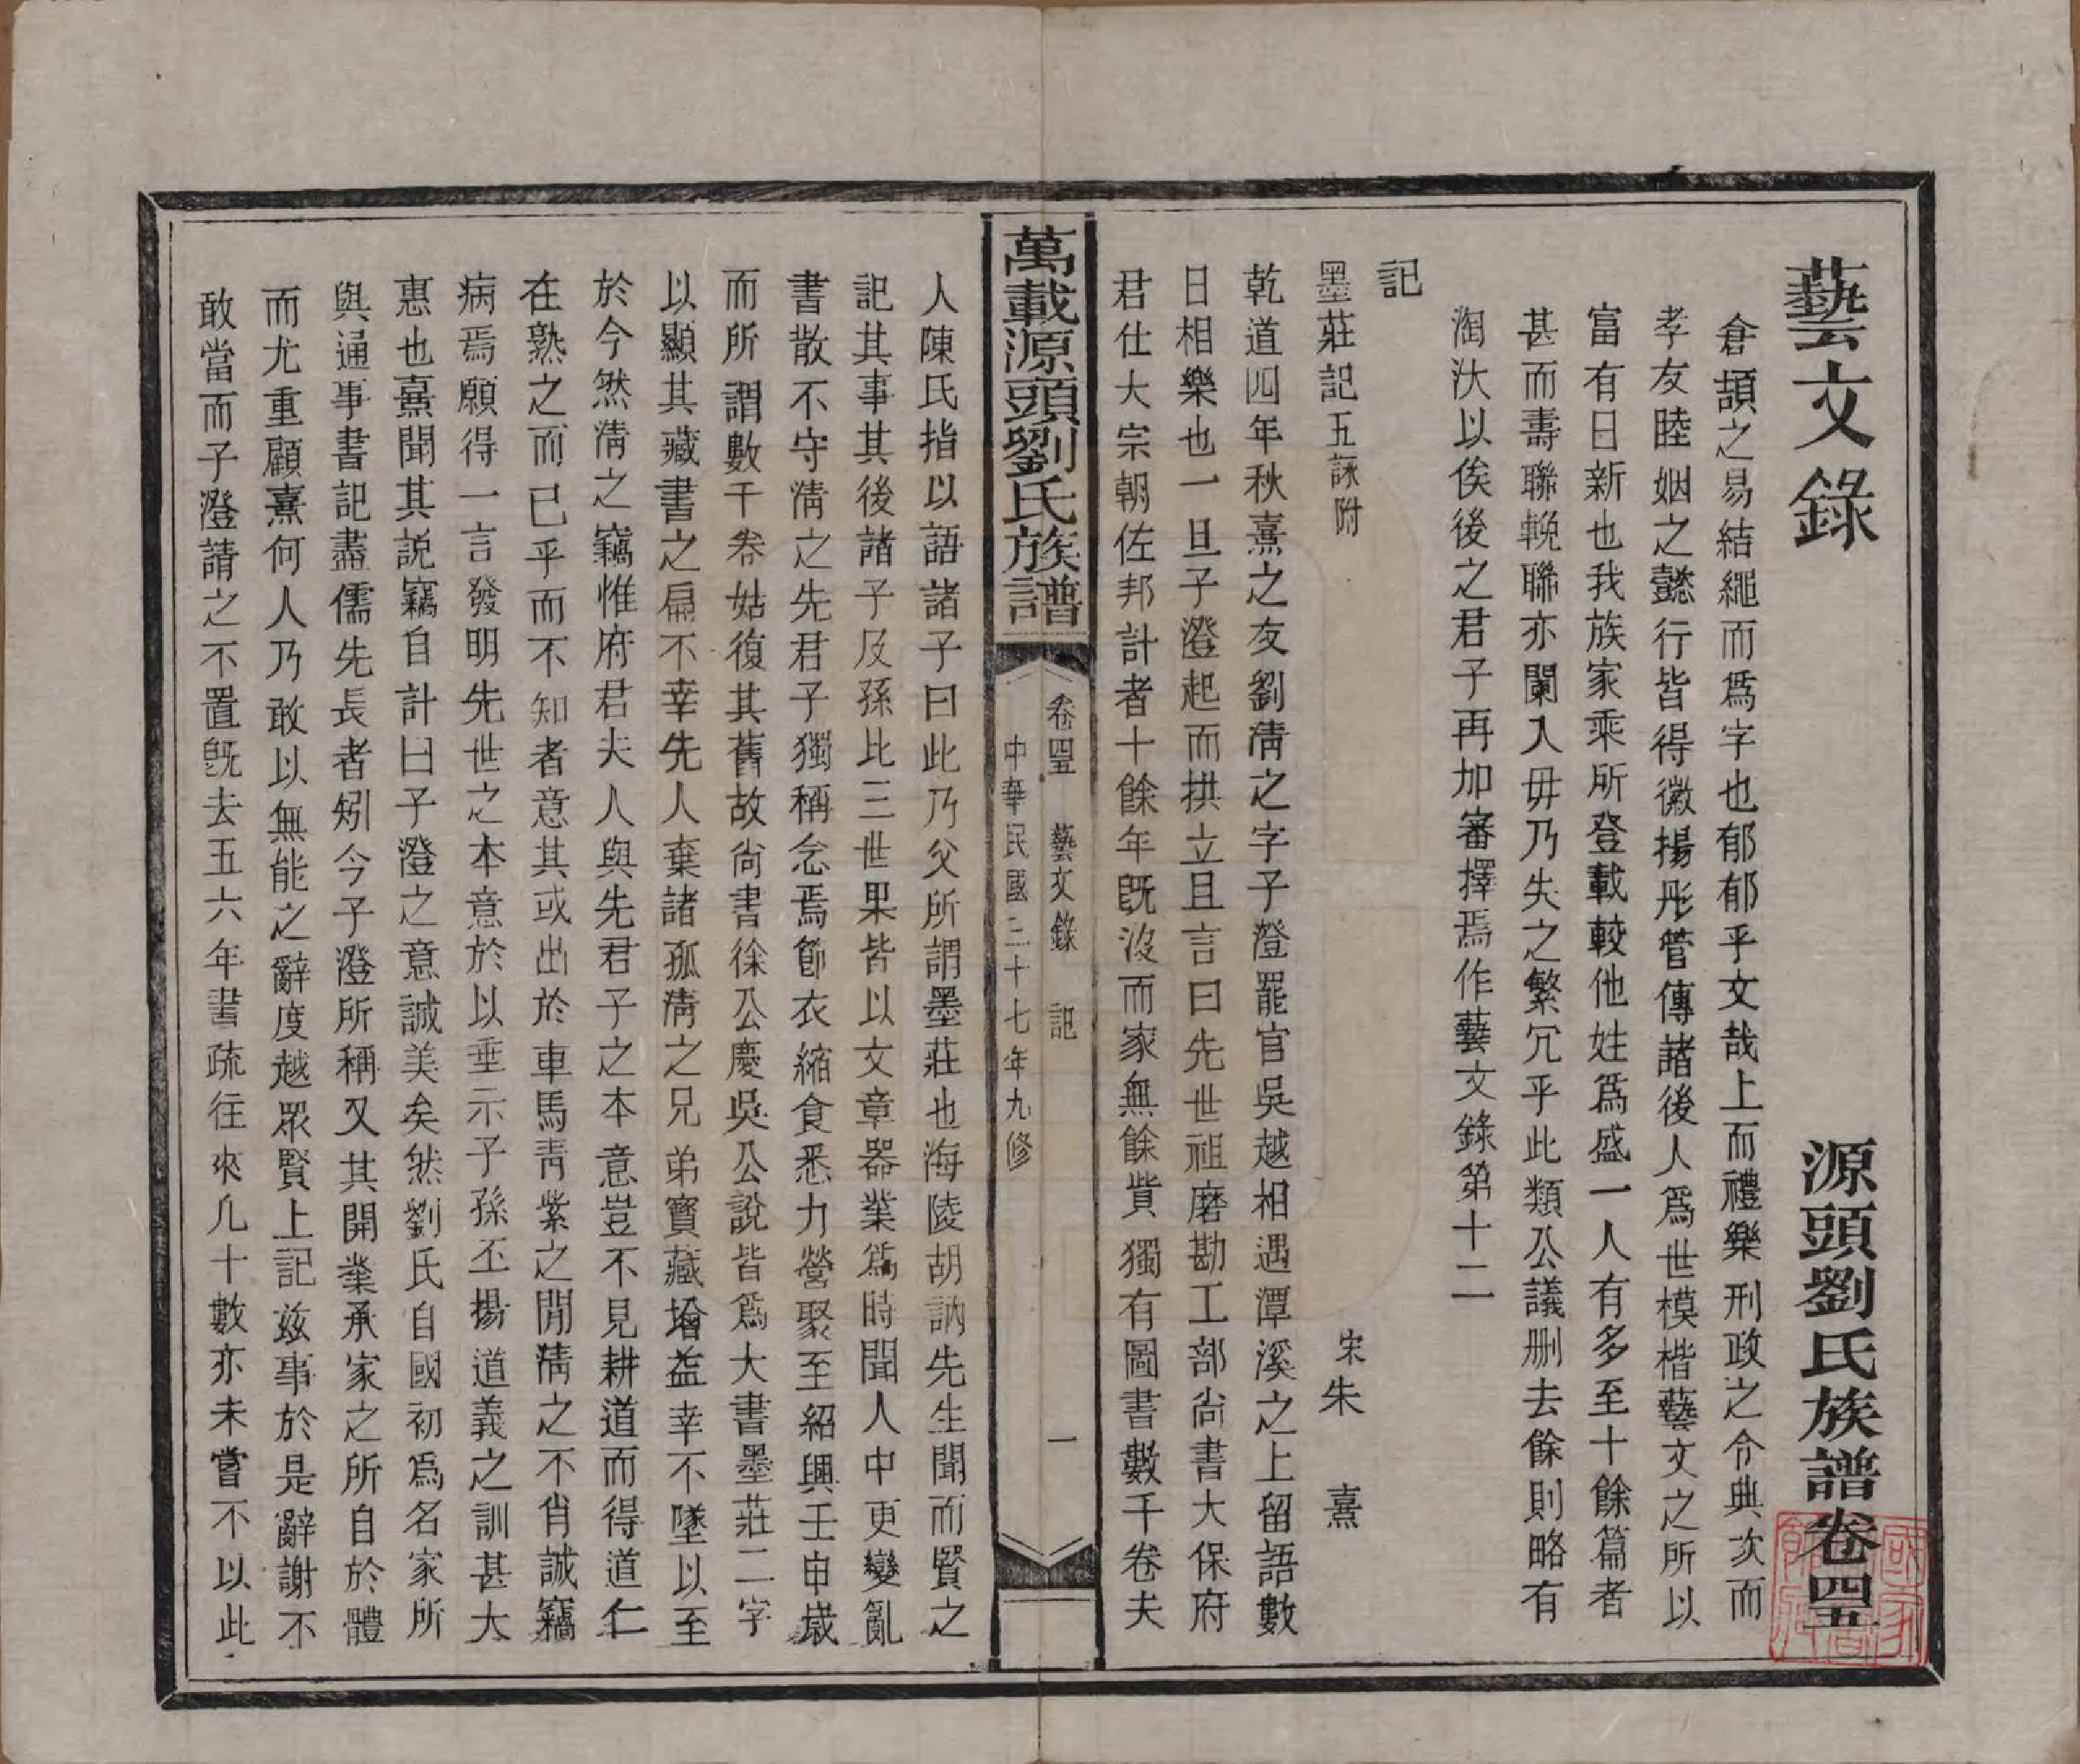 藝文錄　源頭劉氏族譜卷四五
倉頡之易結繩而爲字也郁郁乎文哉上而禮樂刑政之令典次而
孝友睦姻之懿行皆得徽揚彤管傳諸後人爲世模楷藝文之所以
富有日新也我族家乘所登載較他姓爲盛一人有多至十餘篇者
甚而壽聯輓聯亦闌入毋乃失之繁冗乎此類公議刪去餘則略有
淘汰以俟後之君子再加審擇焉作藝文錄第十二
記
墨莊記五詠附　宋朱熹
乾道四年秋熹之友劉淸之字子澄罷官吳越相遇潭溪之上留語數
日相樂也一旦子澄起而拱立且言曰先世祖磨勘工部尙書大保府
君仕大宗朝佐邦計者十餘年旣沒而家無餘貲獨有圖書數千卷夫
萬載源頭劉氏族譜
卷四五　藝文錄　記　一
中華民國三十七年九修
人陳氏指以語諸子曰此乃父所謂墨莊也海陵胡訥先生聞而賢之
記其事其後諸子及孫比三世果皆以文章器業爲時聞人中更變亂
書散不守淸之先君子獨稱念焉節衣縮食悉力營聚至紹興壬申歲
而所謂數千卷姑復其舊故尙書徐公慶吳公說皆爲大書墨莊二字
以顯其藏書之扁不幸先人棄諸孤淸之兄弟寶藏增益幸不墜以至
於今然淸之竊惟府君夫人與先君子之本意豈不見耕道而得道仁
在熟之而已乎而不知者意其或出於車馬靑紫之閒淸之不肖誠竊
病焉願得一言發明先世之本意於以垂示子孫丕揚道義之訓甚大
惠也熹聞其說竊自計曰子澄之意誠美矣然劉氏自國初爲名家所
與通事書記盡儒先長者矧今子澄所稱又其開業承家之所自於體
而尤重顧熹何人乃敢以無能之辭度越眾賢上記茲事於是辭謝不
敢當而子澄請之不置旣去五六年書疏往來几十數亦未嘗不以此